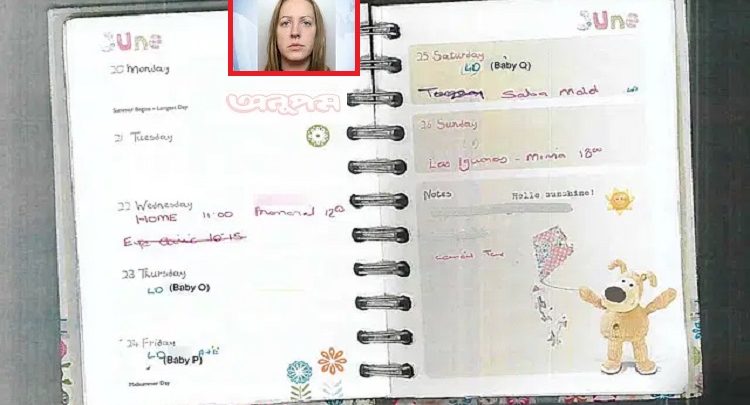 June
20 Monday
Summer Begins – Longest Day
21 Tuesday
22 Wednesday
HOME 11:00 Memorial 12:00
Eye clinic 10:15
23 Thursday
LD (Baby O)
24 Friday
LD A+E
(Baby P)
Midsummer Day
অনুপম
June
25 Saturday
LD (Baby Q)
Salsa Mold
26 Sunday
Las Iguanas - Mima 18:00
Notes Hello sunshine!